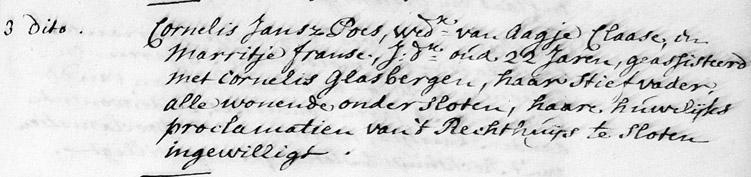 3 Dito. Cornelis Jansz Poes, wedr. van Aagje Claase, en
Marritje franse, J: dr. oud 22 Jaren, geassisteerd
met Cornelis Glasbergen, haar Stiefvader,
alle wonende onder Sloten, haare huwelijks
proclamatien van't Rechthuijs te Sloten
ingewilligt.